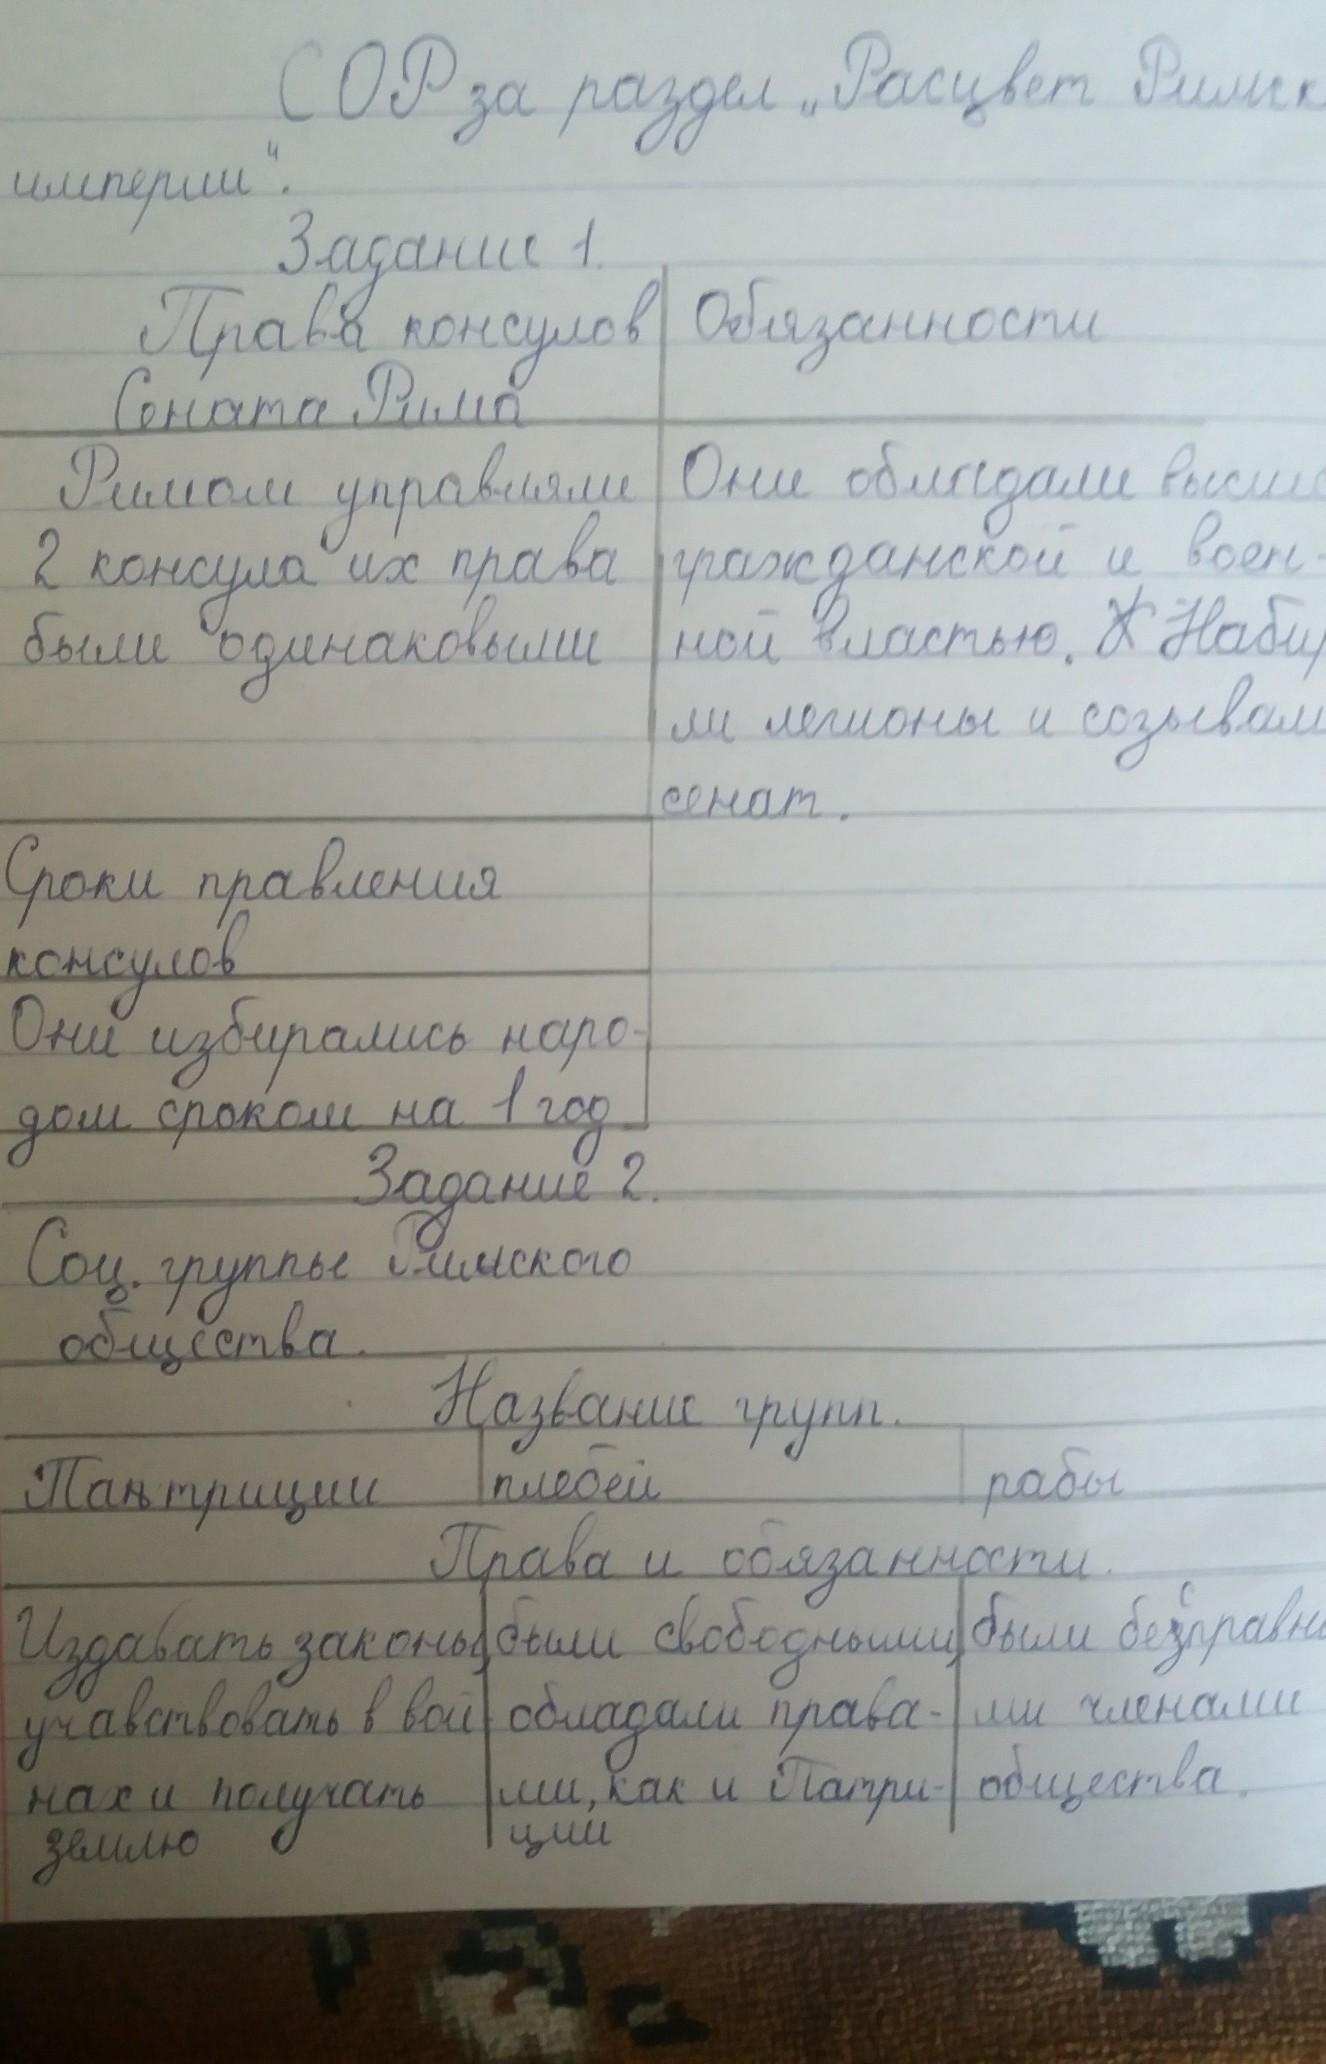 СОР за раздел „Расцвет Римск
империи“.
Задание 1.
Права консулов Обязанности
Сената Рима
Римом управляли Они обладали высше
2 консула их права гражданской и воен-
были одинаковыми ной властью. Набир
ли легионы и созывали
сенат.
Сроки правления
консулов
Они избирались наро-
дом сроком на 1 год
Задание 2.
Соц. группы Римского
общества.
Название групп.
Патриции плебеи рабы
Права и обязанности.
Издавать законы, были свободными, были бесправны
учавствовать в вой обладали права- ми членами
нах и получать ми, как и Патри- общества.
землю ции